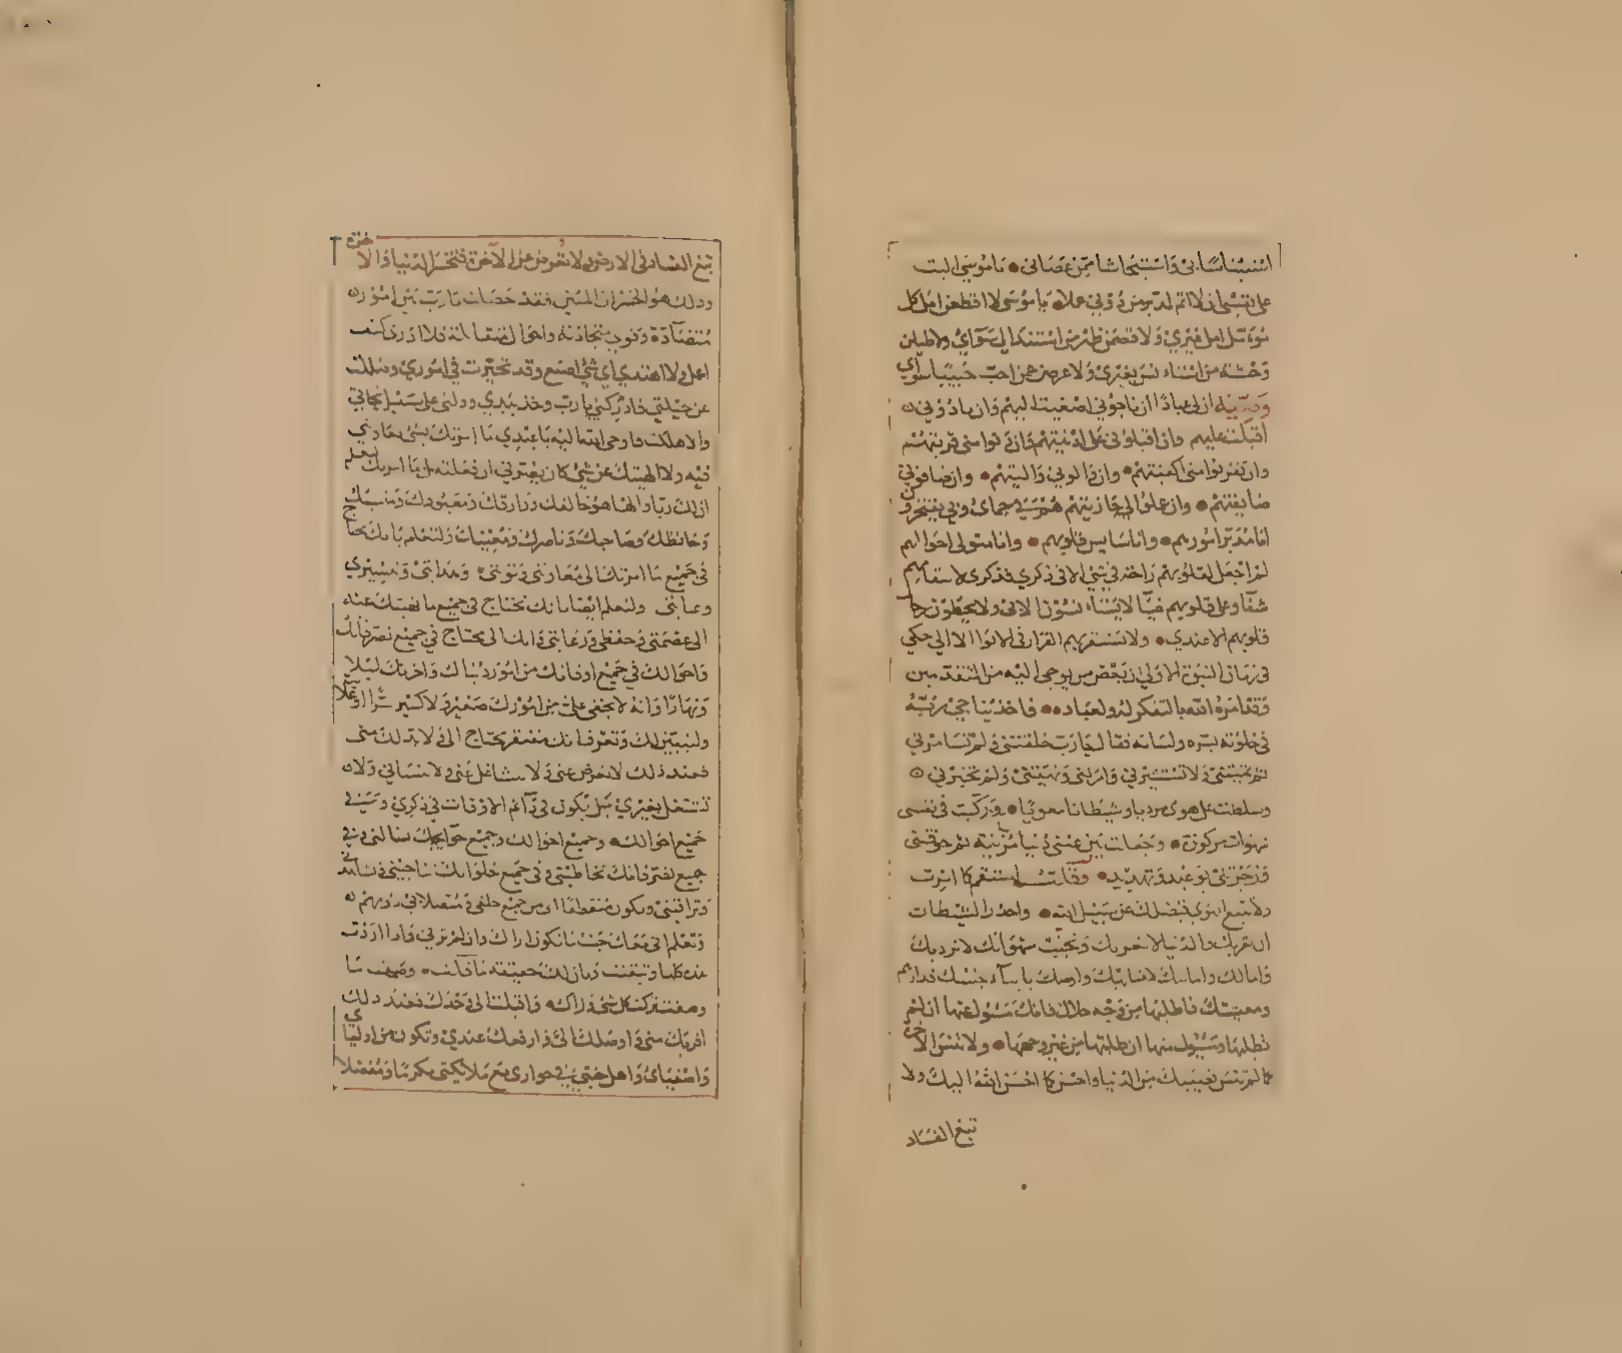 استئناسا بي واستيحاشا ممن عصاني يا موسى اليت
على نفسي ان لا اتم لمدبر من دوني عملا يا موسى لاقطعن امل كل
مؤمل امل غيري ولاقصمن ظهر من استند الى سواي ولاطيلن
وحشة من استأنس بغيري ولاعرضن عمن احب حبيبا سواي
ان لي عبادا ان ناجوني اصغيت اليهم وان نادوني
اقبلت عليهم وان اقبلوا علي ادنيتهم وان دنوا مني قربتهم
وان تقربوا مني اكنفتهم وان والوني واليتهم وان صافوني
صافيتهم وان عملوا لي جازيتهم هم في حماي وبي يفتخرون
انا مدبر امورهم وانا سايس قلوبهم وانا متولي احوالهم
لم اجعل لقلوبهم راحة في شيء الا في ذكري فذكري لاسقامهم
شفا وعلى قلوبهم ضيا لا يستانسون الا بي ولا يحطون رحال
قلوبهم الا عندي ولا يستقر بهم القرار في الايوا الا الي حكي
في زمان النبوة الاولى ان بعض من يوحى اليه من المتقدمين
وقد امره الله بالتفكر له ولعباده فاخذ يناجي ربه
في خلوته بسره ولسانه فقال يا رب خلقتني ولم تسامرني
ثم تميتني ولا تستشيرني وامرتني ونهيتني ولم تخيرني
وسلطت علي هوى مرديا وشيطانا مغويا وركبت في نفسي
شهوات مركوزة وجعلت بين عيني دنيا مزينة ثم خوفتني
وزجرتني بوعيد وتهديد وقلت استقم كما امرت
ولا تتبع الهوى فيضلك عن سبيل الله واحذر الشيطان
ان يغرنك والدنيا لا تغرنك وتجنب شهواتك لا ترديك
وامالك وامانيك لا تلهيك واوصيك بابناء جنسك فدارهم
ومعيشتك فاطلبها من وجه حلال فانك مسئول عنها ان لم
تطلبها ومسئول عنها ان طلبتها من غير وجهها ولا تنس الاخرة
كما لم تنس نصيبك من الدنيا واحسن كما احسن الله اليك ولا
تبغ الفساد
تبغ الفساد في الارض ولا تعرض عن الاخرة فتخسر الدنيا والاخرة
وذلك هو الخسران المبين فقد حصلت يا رب بين امور
متضادة وقوى متجاذبة واحوال متقابلة فلا ادري كيف
اعمل ولا اهتدي اي شيء اصنع وقد تحيرت في اموري وضللت
عن حيلتي فادركني يا رب وخذ بيدي ودلني على سبيل نجاتي
والا هلكت فاوحى الله اليه يا عبدي ما امرتك بشيء تعاونني
فيه ولا نهيتك عن شيء كان يضرني ان فعلته انما امرتك لتعلم
ان لك ربا والها هو خالقك ورازقك ومعبودك ومنشيك
وحافظك وصاحبك وناصرك ومعينك ولتعلم بانك محتاج
في جميع ما امرتك الى معاونتي وتوفيقي وهدايتي وتيسيري
وعنايتي ولتعلم ايضا بانك تحتاج في جميع ما نهيتك عنه
الى عصمتي وحفظي ورعايتي وانك الي محتاج في جميع تصرفاتك
واحوالك في جميع اوقاتك من امور دنياك واخرتك ليلا
ونهارا وانه لا يخفى علي من امورك صغير ولا كبير سرا وعلانية
وليتبين لك وتعرف انك مفتقر محتاج الي ولا بد لك مني
فعند ذلك لا تعرض عني ولا تتشاغل عني ولا تنساني ولا
تشتغل بغيري بل تكون في دائم الاوقات في ذكري وتسئلني
جميع احوالك وجميع حوايجك تسالني وفي
جميع تصرفاتك تخاطبني وفي جميع خلواتك تناجيني وتشاهدني
وتراقبني وتكون منقطعا الي من جميع خلقي ومتصلا بي دونهم
وتعلم اني معك حيث ما تكون اراك وان لم ترني فاذا اردت
هذه كلها وتيقنت وبان لك حقيقة ما قلت وصحة ما
وصفت تركت كل شيء وراك واقبلت الي وحدك فعند ذلك
اقربك مني واوصلك الي وارفعك عندي وتكون من اوليائي
واصفيائي واهل جنتي في جواري مع ملائكتي مكرما ومفضلا